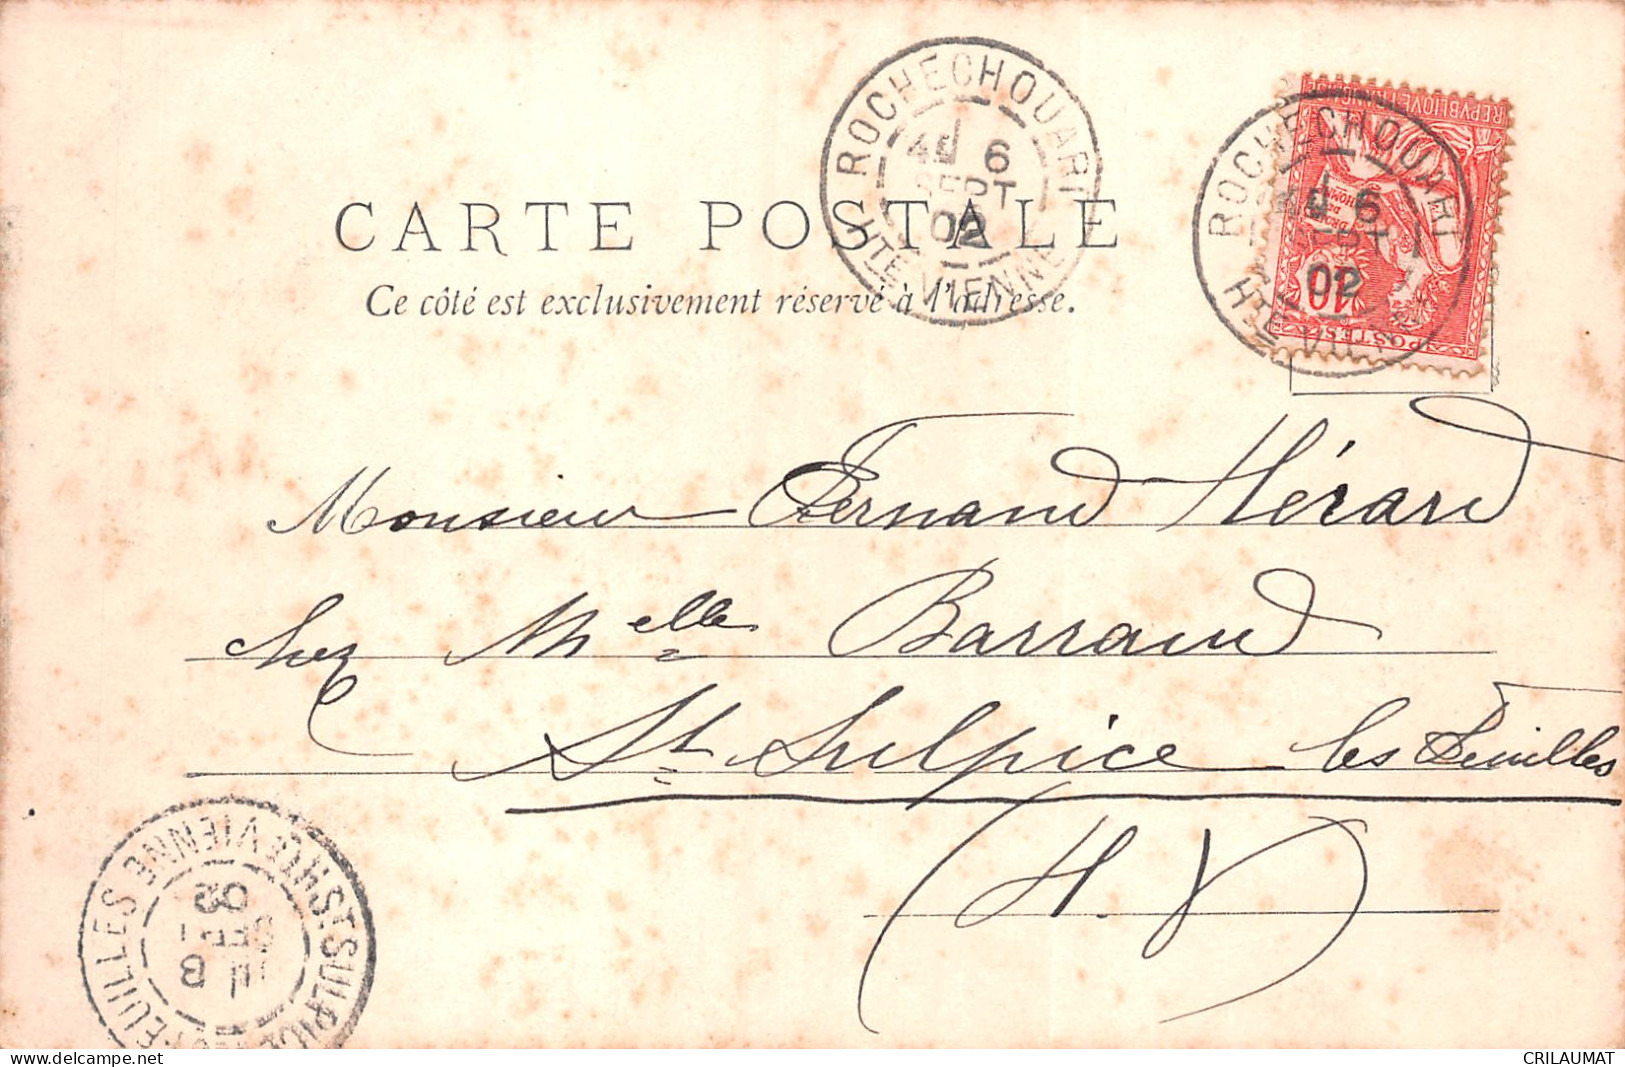 ROCHECHOUART
4E 6
SEPT
02
HTE VIENNE
REPVBLIQVE FRANÇAISE
10
POSTES
ROCHECHOUART
4E 6
SEPT
02
HTE VIENNE
CARTE POSTALE
Ce côté est exclusivement réservé à l'adresse.
Monsieur Fernand Hérard
chez Melle Barraud
St Sulpice les Feuilles
(H. V)
ST SULPICE LES FEUILLES
8
SEPT
02
HTE VIENNE
www.delcampe.net
CRILAUMAT